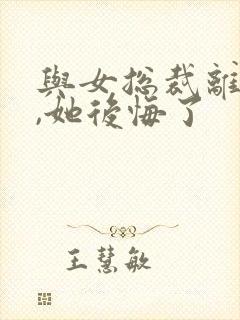 與女总裁離
,她後悔了
王慧敏